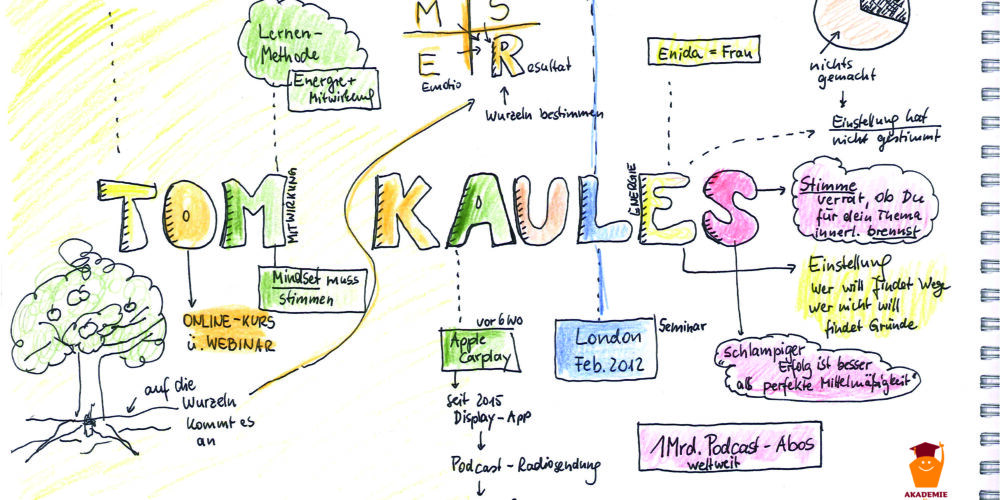 Lernen-
Methode
Energie +
Mitwirkung
M S
E R
Emotio
Resultat
Wurzeln bestimmen
Enida = Frau
nichts
gemacht
Einstellung hat
nicht gestimmt
TOM KAULES
MITWIRKUNG
ENERGIE
Stimme
verrät, ob Du
für dein Thema
innerl. brennst
Mindset muss
stimmen
Einstellung
wer will findet Wege
wer nicht will
findet Gründe
ONLINE-KURS
ü. WEBINAR
vor 6 Wo
Apple
Carplay
London
Feb. 2012
Seminar
"schlampiger
Erfolg ist besser
als perfekte Mittelmäßigkeit"
auf die
Wurzeln
kommt es
an
seit 2015
Display-App
Podcast-Radiosendung
1 Mrd. Podcast-Abos
weltweit
AKADEMIE